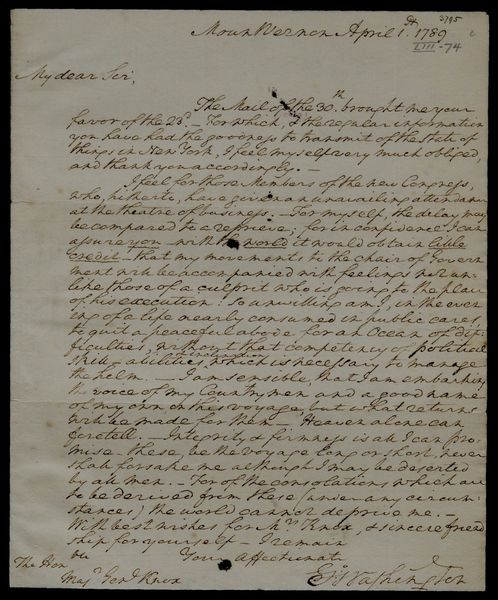 3795
Mount Vernon April 1st. 1789
LIII-74
My dear Sir,
The Mail of the 30th. brought me your
favor of the 23d. — For which, & the regular information
you have had the goodness to transmit of the state of
things in New York, I feel myself very much obliged,
and thank you accordingly. —
I feel for those Members of the new Congress,
who, hitherto, have given an unavailing attendance
at the theatre of business. — For myself, the delay may
be compared to a reprieve; for in confidence I can
assure you — with the world it would obtain little
credit — that my movements to the chair of Govern
ment will be accompanied with feelings not un
like those of a culprit who is going to the place
of his execution: so unwilling am I, in the even
ing of a life nearly consumed in public cares,
to quit a peaceful abode for an Ocean of dif-
ficulties, without that competency of political
skill — abilities & inclination which is necessary to manage
the helm. — I am sensible, that I am embarking
the voice of my Countrymen and a good name
of my own, on this voyage, but what returns
will be made for them — Heaven alone can
foretell. — Integrity & firmness is all I can pro-
mise — these, be the voyage long or short, never
shall forsake me although I may be deserted
by all men. — For of the consolations which are
to be derived from these (under any circum-
stances) the world cannot deprive me. —
With best wishes for Mrs Knox, & sincere friend
ship for yourself — I remain
Your affectionate
Go: Washington
The Hon
Majr Genl Knox